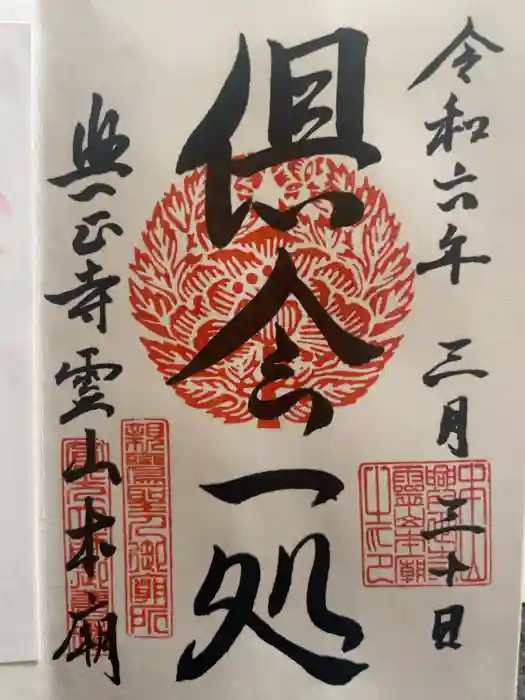 令和六年 三月 三十日
倶会一処
興正寺霊山本廟
親鸞聖人御廟所